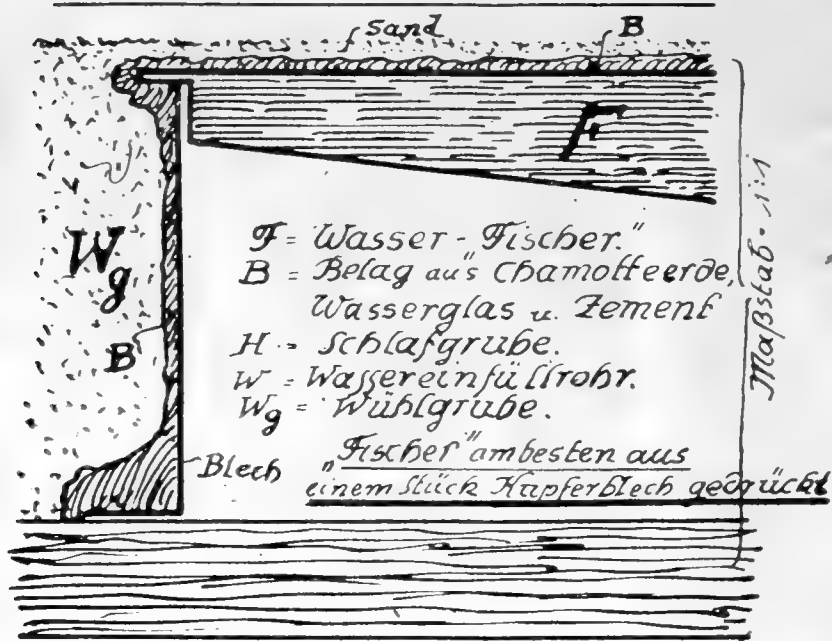 Sand
B
F
Wg
B
F = Wasser-Fischer."
B = Belag aus Chamotteerde,
Wasserglas u. Zement
H = Schlafgrube.
W = Wassereinfüllrohr.
Wg = Wühlgrube.
Blech
„Fischer" ambesten aus
einem Stück Kupferblech gedrückt
Maßstab - 1:1